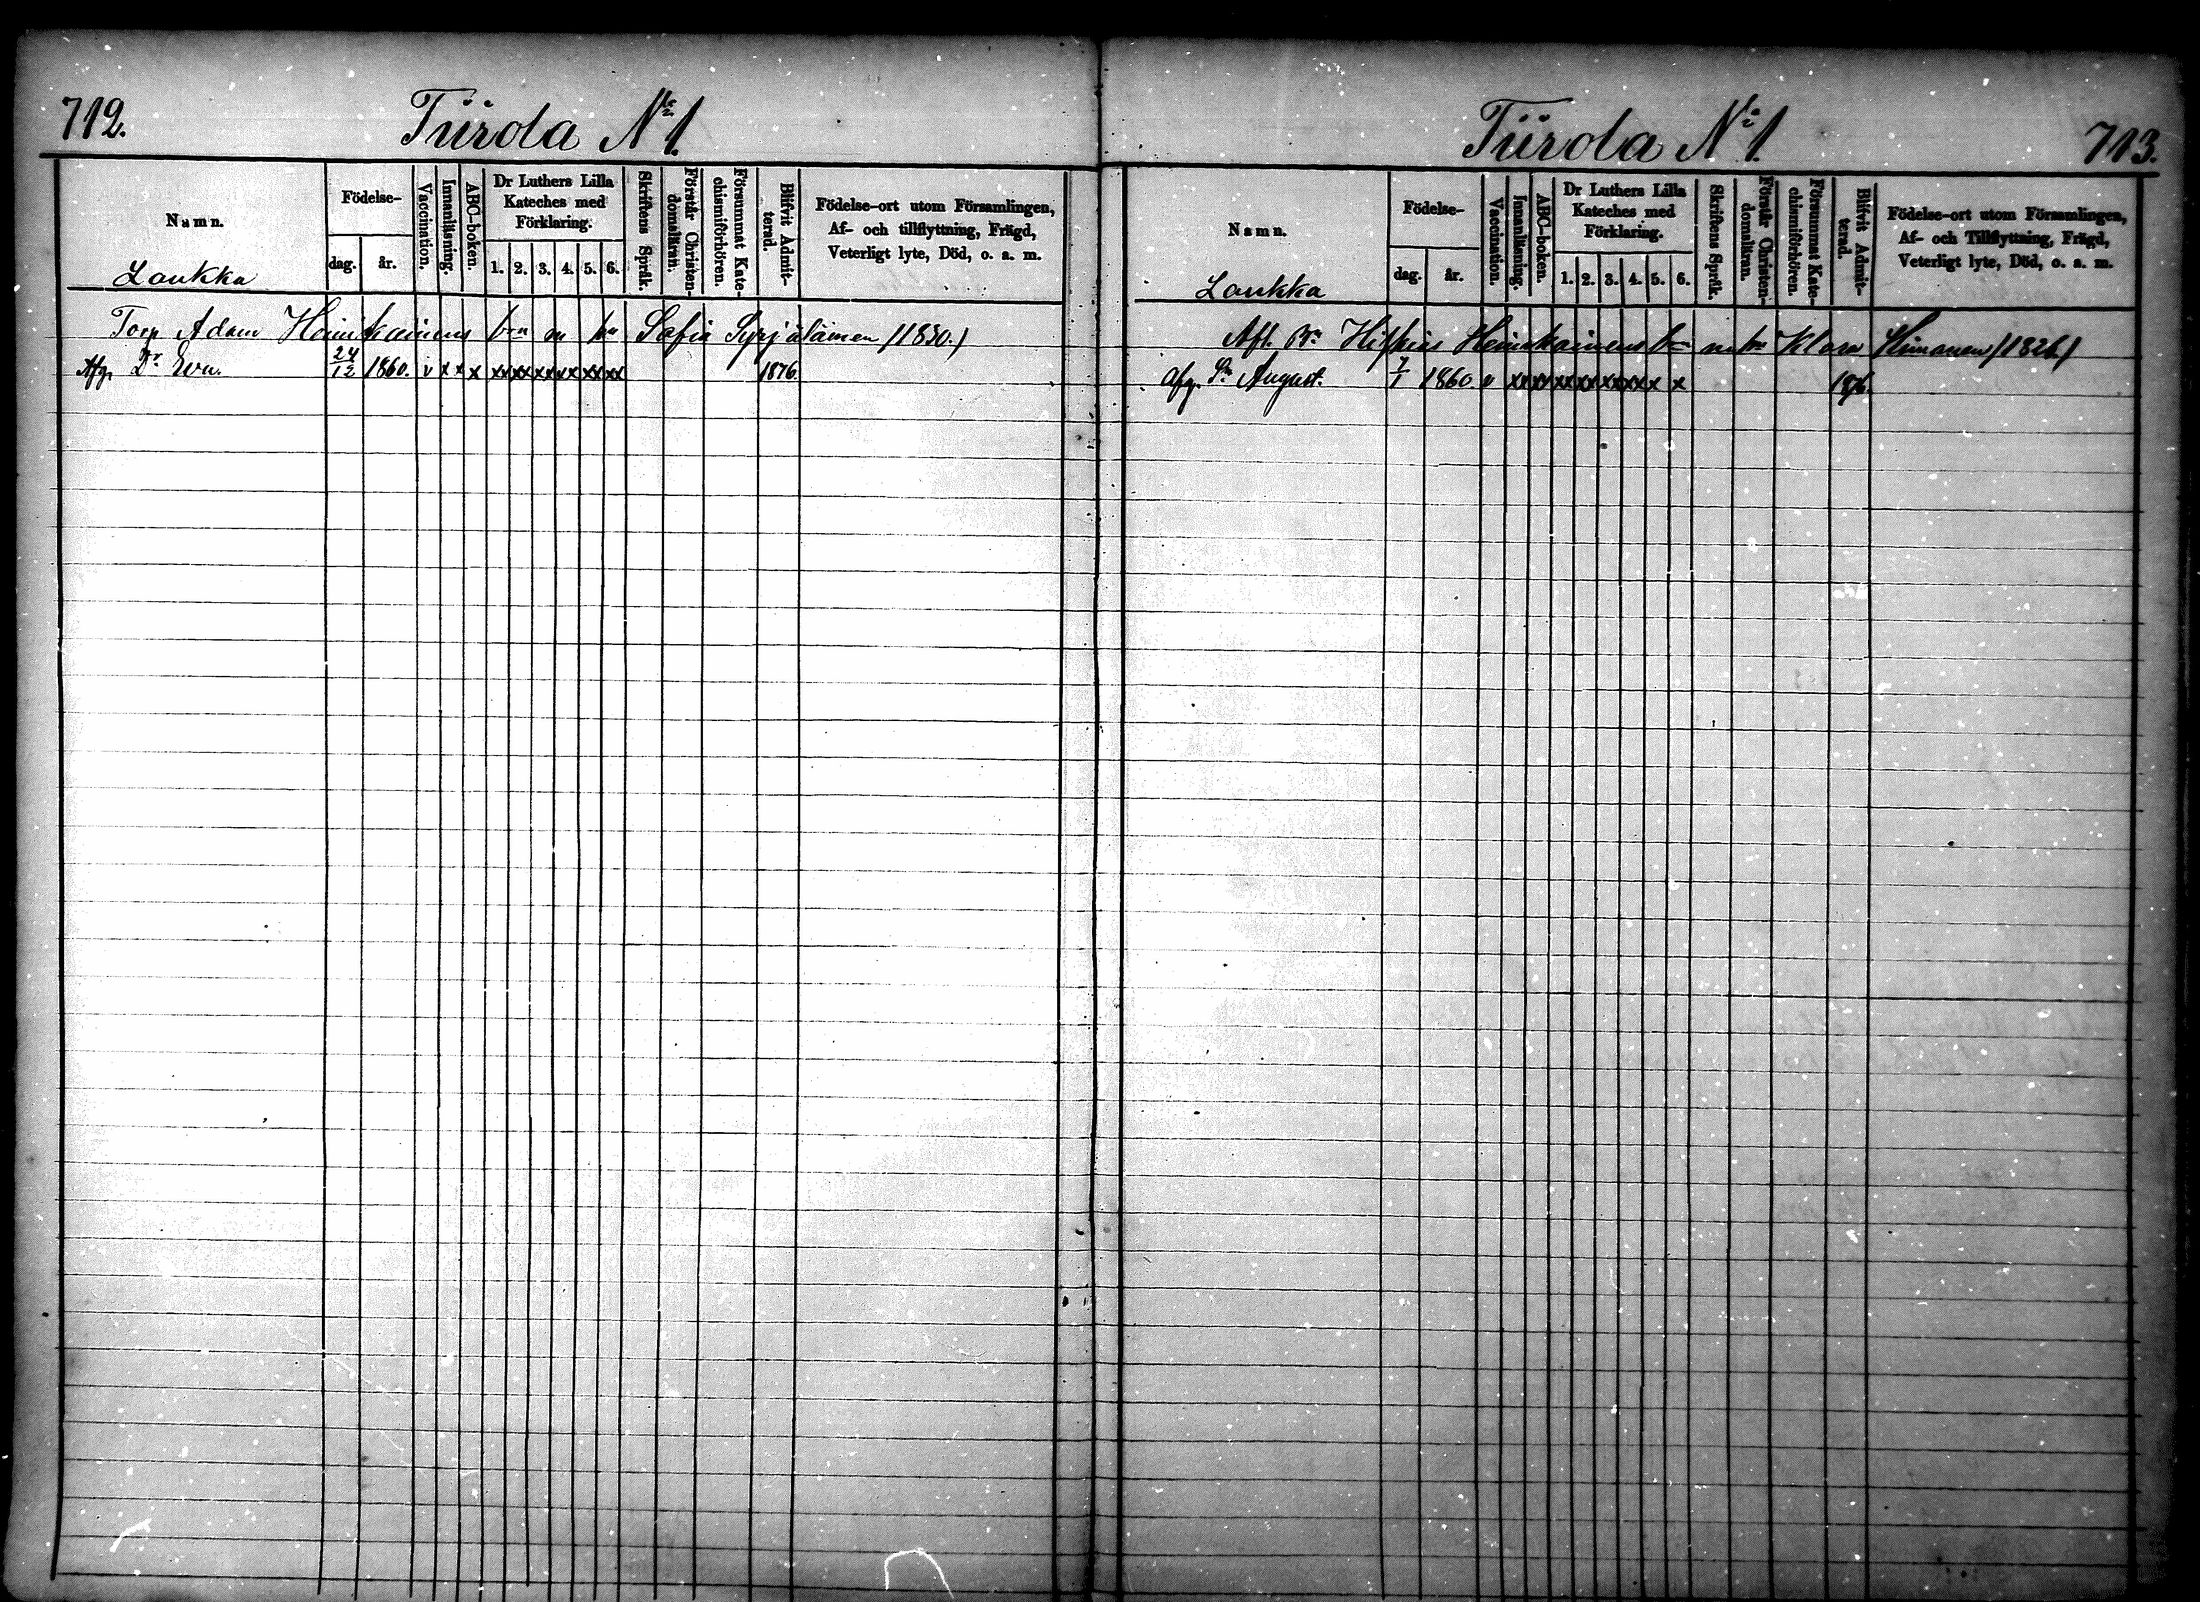 712.
Tiirola No 1.
Namn.
Födelse-
dag.
år.
Vaccination.
Innanläsning.
ABC-boken.
Dr Luthers Lilla
Kateches med
Förklaring.
1. 2. 3. 4. 5. 6.
Skriftens Språk.
Förstår Christen-
domsläran.
Försummat Kate-
chismiförhören.
Blifvit Admit-
terad.
Födelse-ort utom Församlingen,
Af- och tillflyttning, Frägd,
Veterligt lyte, Död, o. a. m.
Laukka
Torp Adam Heinikainens b:n m hu Sofia Syrjäläinen (1830.)
Afg. Dr Eva. 24/12 1860. v x x x xx xx xx xx xx xx 1876.
Tiirola No 1.
713.
Namn.
Födelse-
dag.
år.
Vaccination.
Innanläsning.
ABC-boken.
Dr Luthers Lilla
Kateches med
Förklaring.
1. 2. 3. 4. 5. 6.
Skriftens Språk.
Förstår Christen-
domsläran.
Försummat Kate-
chismiförhören.
Blifvit Admit-
terad.
Födelse-ort utom Församlingen,
Af- och Tillflyttning, Frägd,
Veterligt lyte, Död, o. a. m.
Laukka
Afl. Heinikainens Klara Himanen (1826)
Afg. Sn August. 7/1 1860. v 1876.